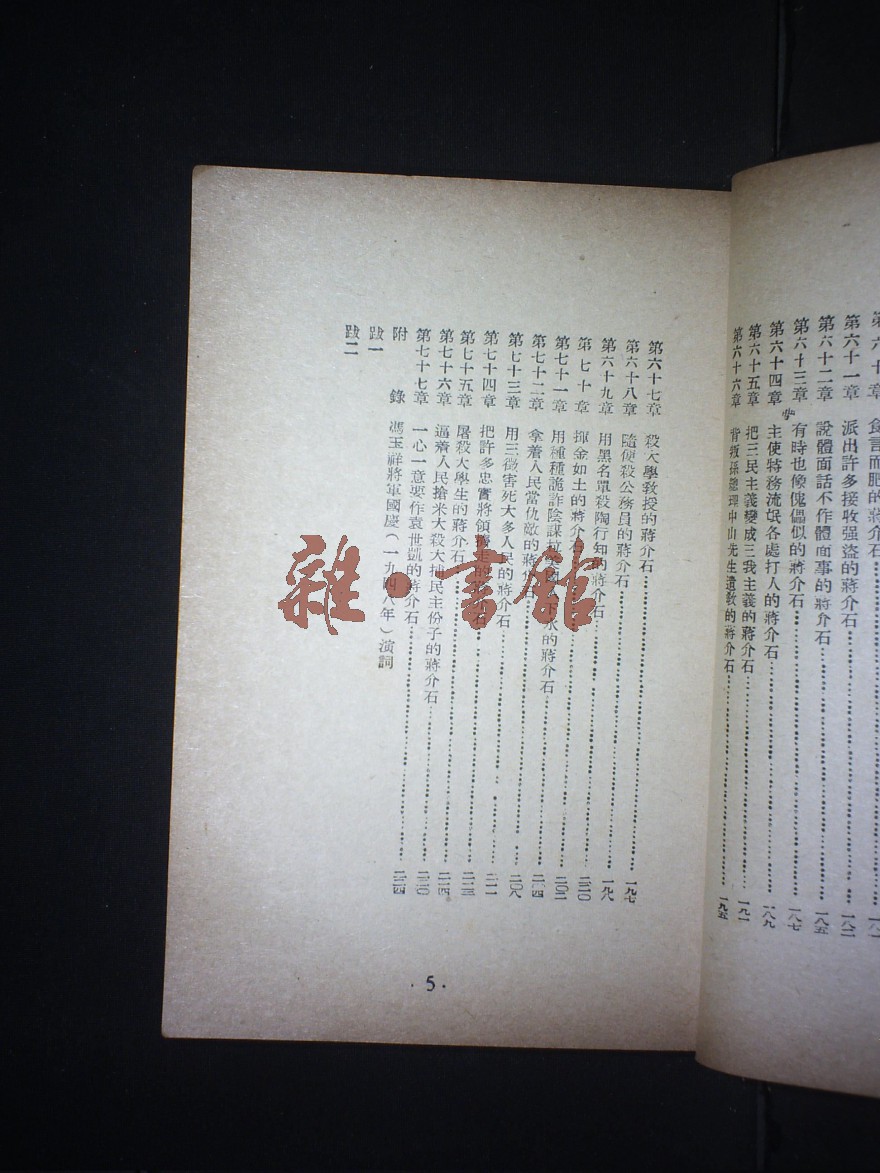 食言而肥的蔣介石
第六十一章 派出許多接收强盜的蔣介石 一八二
第六十二章 說體面話不作體面事的蔣介石 一八五
第六十三章 有時也像傀儡似的蔣介石 一八七
第六十四章 主使特務流氓各處打人的蔣介石 一八九
第六十五章 把三民主義變成三我主義的蔣介石 一九一
第六十六章 背叛孫總理中山先生遺敎的蔣介石 一九五
第六十七章 殺大學敎授的蔣介石 一九七
第六十八章 隨便殺公務員的蔣介石 一九八
第六十九章 用黑名單殺陶行知的蔣介石
第七十章 揮金如土的蔣介石 二〇二
第七十一章 用種種詭詐陰謀拉美國下水的蔣介石 二〇四
第七十二章 拿着人民當仇敵的蔣介石 二〇八
第七十三章 用三徵害死大多人民的蔣介石 二一一
第七十四章 把許多忠實將領走的蔣介石 二一三
第七十五章 屠殺大學生的蔣介石 二一四
第七十六章 逼着人民搶米大殺大捕民主份子的蔣介石 二二〇
第七十七章 一心一意要作袁世凱的蔣介石 二二四
附錄 馮玉祥將軍國慶（一九四八年）演詞
跋一
跋二
·5·
雜·書館